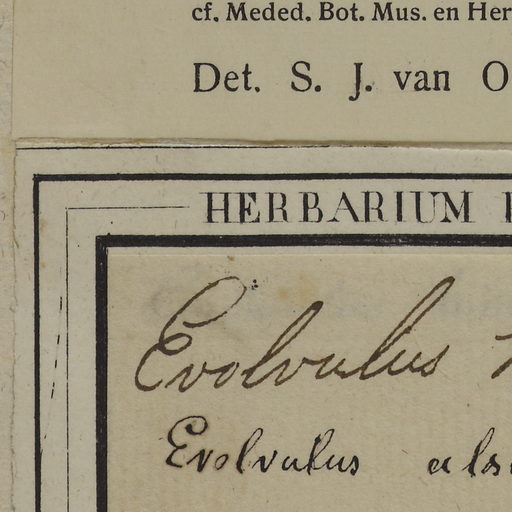 cf. Meded. Bot. Mus. en Her
Det. S. J. van O
HERBARIUM
Evolvulus
Evolvulus als